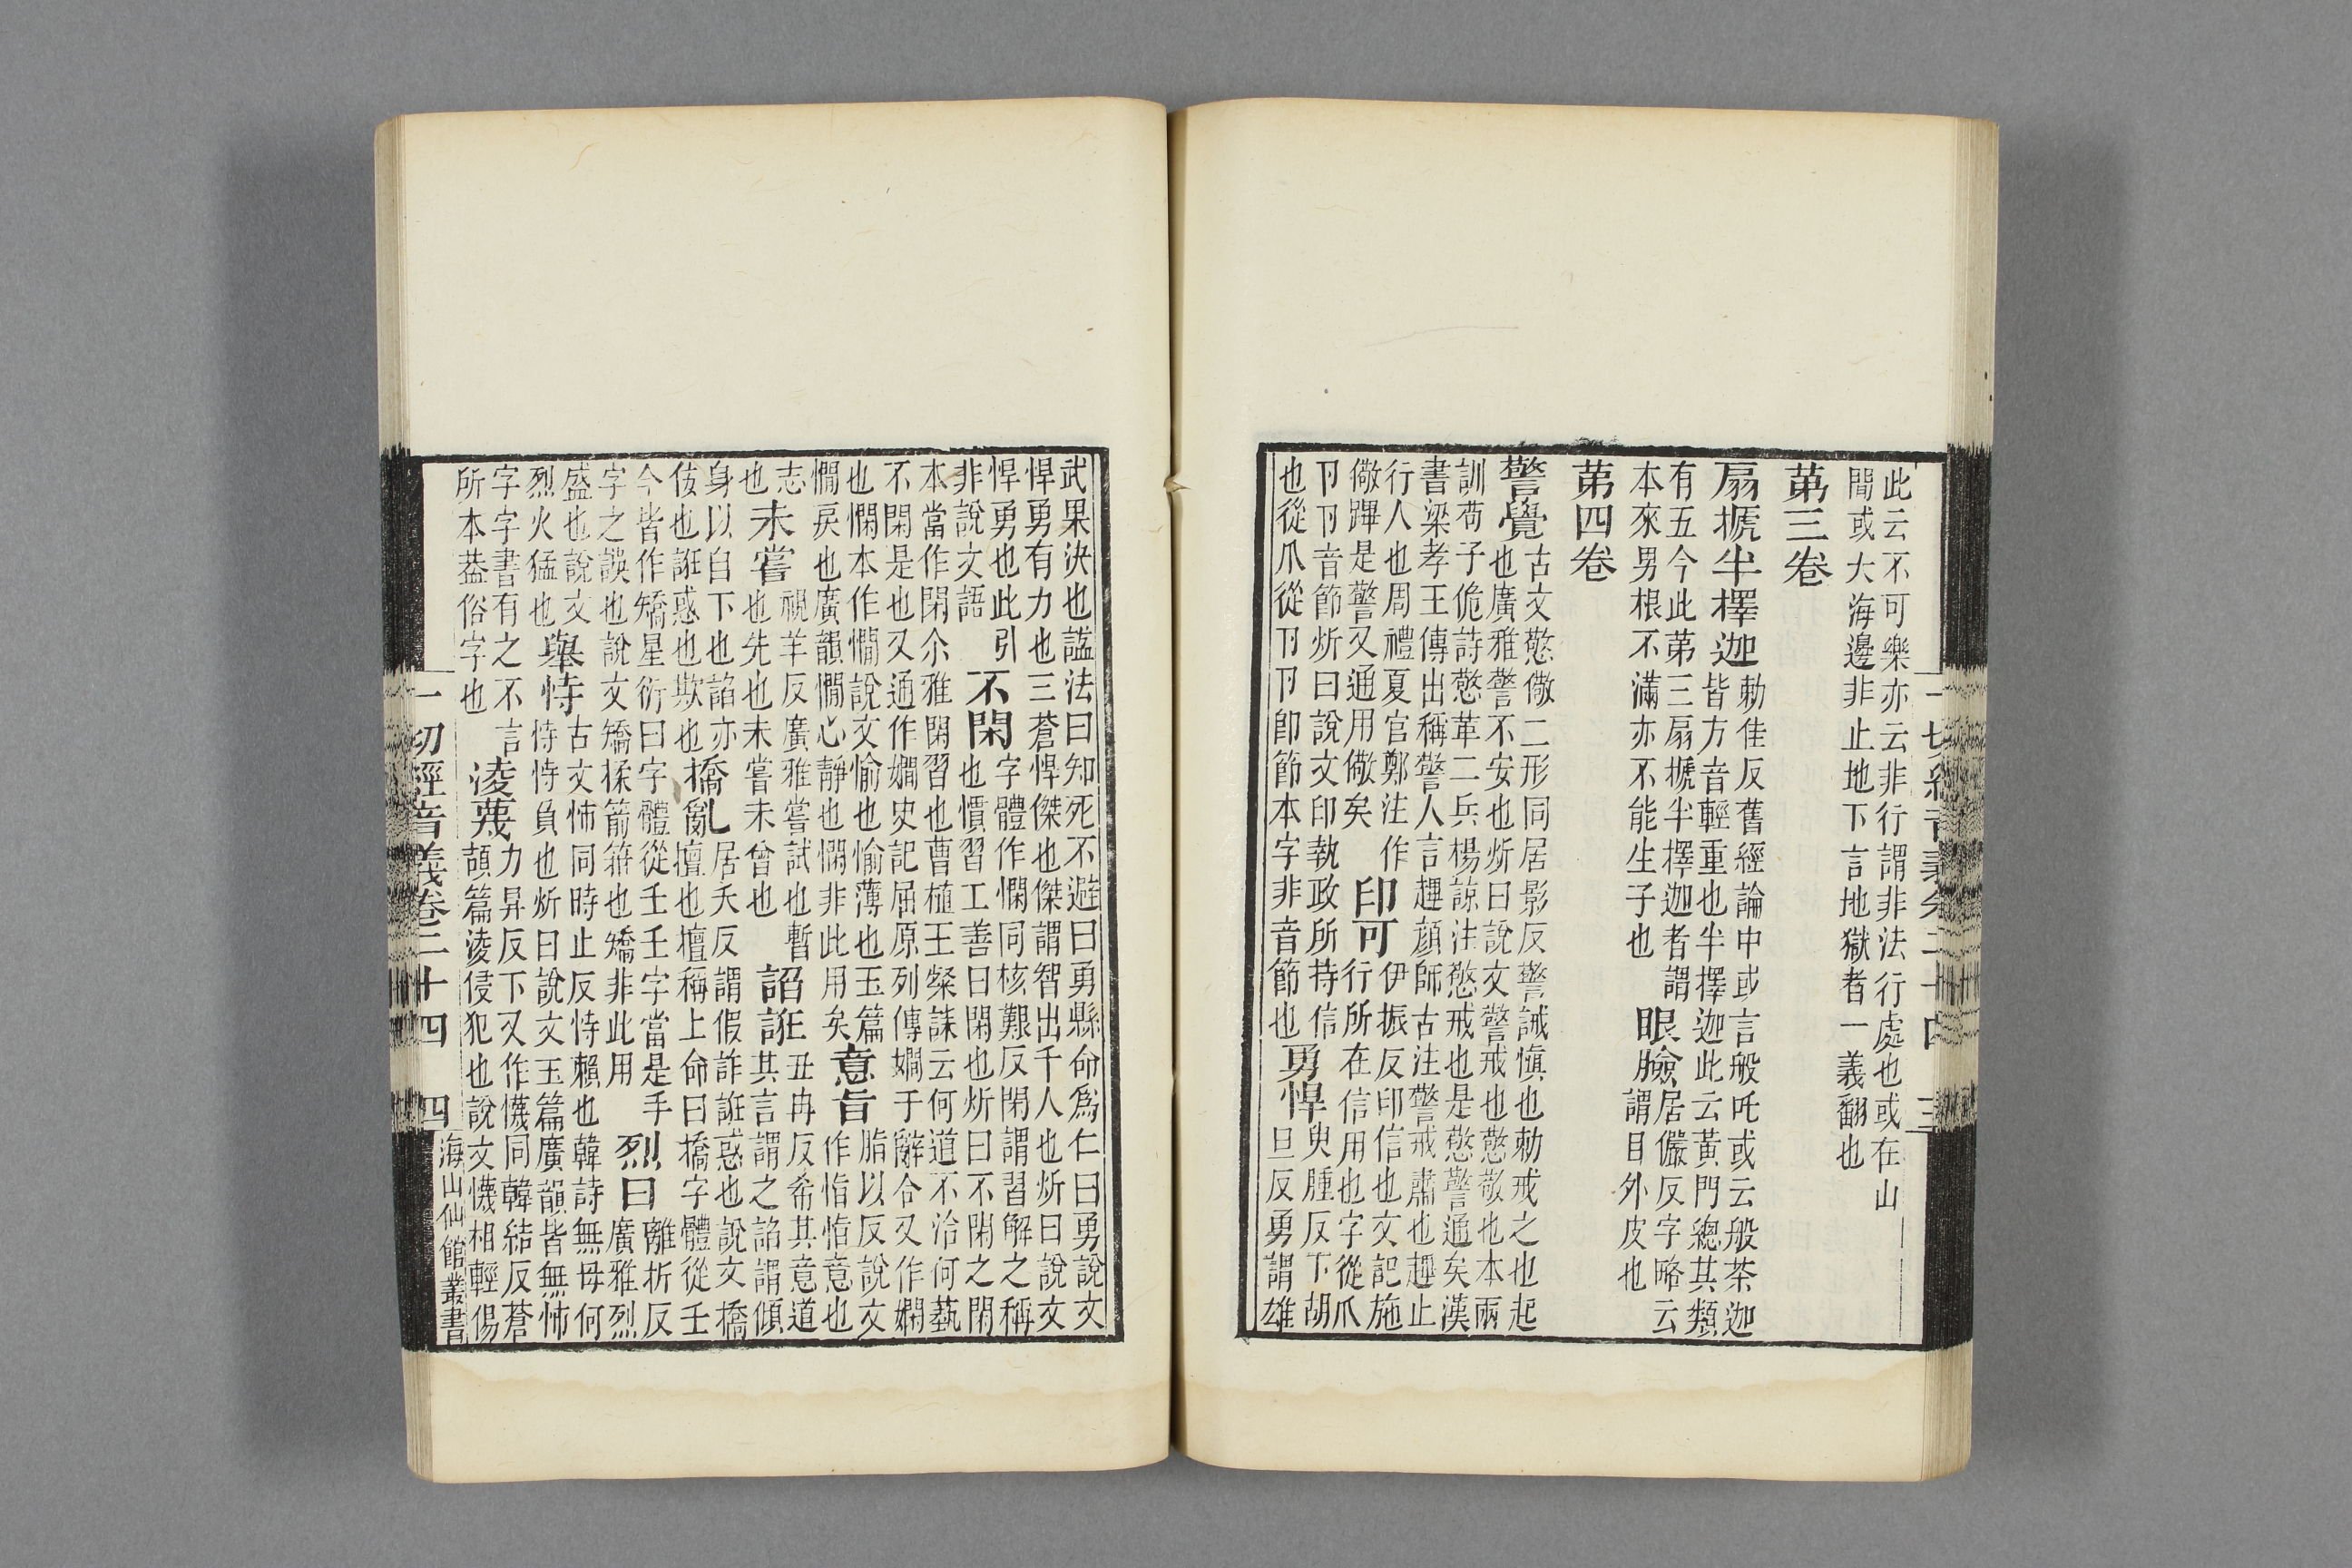 此云不可樂亦云非行謂非法行處也或在山
間或大海邊非止地下言地獄者一義翻也
第三卷
扇搋半擇迦勅佳反舊經論中或言般吒或云般荼迦
皆方音輕重也半擇迦此云黃門總其類
有五今此第三扇搋半擇迦者謂
本來男根不滿亦不能生子也
眼瞼居儼反字略云
謂目外皮也
第四卷
警覺古文憼儆二形同居影反警誡愼也勅戒之也起
也廣雅警不安也炘曰說文警戒也憼敬也本兩
訓荀子佹詩憼革二兵楊諒注憼戒也是憼警通矣漢
書梁孝王傳出稱警人言趯顏師古注警戒肅也趯止
行人也周禮夏官鄭注作
儆蹕是警又通用儆矣
印可伊振反印信也文記施
行所在信用也字從爪
卪卪音節炘曰說文印執政所持信
也從爪從卪卪卽節本字非音節也
勇悍臾腫反下胡
旦反勇謂雄
武果決也謚法曰知死不避曰勇縣命爲仁曰勇說文
悍勇有力也三蒼悍傑也傑謂智出千人也炘曰說文
悍勇也此引
非說文語
不閑字體作憪同核艱反閑謂習解之稱
也慣習工善曰閑也炘曰不閑之閑
本當作閑尒雅閑習也曹植王粲誄云何道不洽何藝
不閑是也又通作嫺史記屈原列傳嫺于辭令又作嫻
也憪本作憪說文愉也愉薄也玉篇
憪戾也廣韻憪心靜也憪非此用矣
意旨脂以反說文
作恉恉意也
志
也
未嘗視羊反廣雅嘗試也暫
也先也未嘗未曾也
諂誑丑冉反希其意道
其言謂之諂謂傾
身以自下也諂亦
伎也誑惑也欺也
撟亂居夭反謂假詐誑惑也說文撟
擅也擅稱上命曰撟字體從壬
今皆作矯星衍曰字體從壬壬字當是手
字之誤也說文矯揉箭箝也矯非此用
烈日離折反
廣雅烈
盛也說文
烈火猛也
舉恃古文怖同時止反恃賴也韓詩無母何
恃恃負也炘曰說文玉篇廣韻皆無怖
字字書有之不言
所本葢俗字也
淩蔑力昇反下又作懱同韓結反蒼
頡篇淩侵犯也說文懱相輕傷
一切經音義卷二十四 四
海山仙館叢書